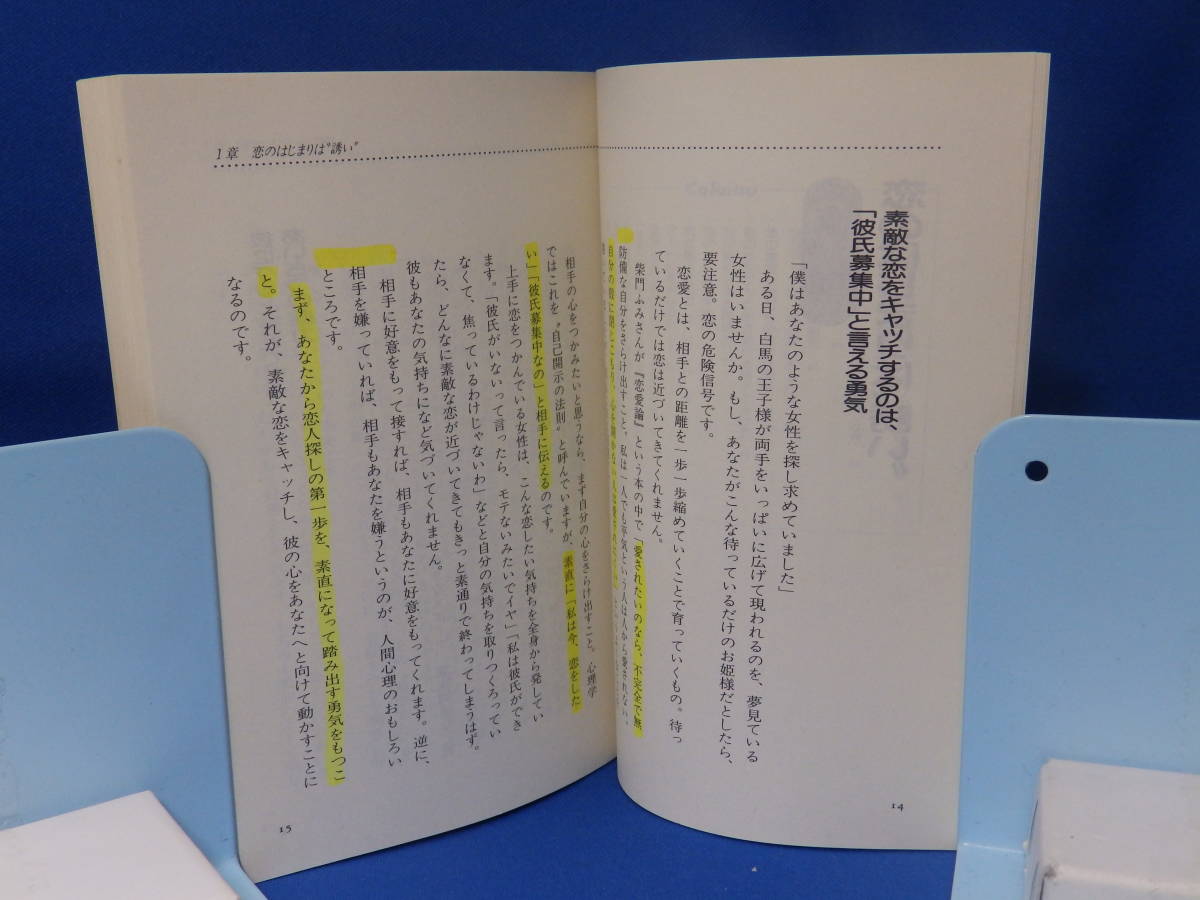 素敵な恋をキャッチするのは、
「彼氏募集中」と言える勇気
「僕はあなたのような女性を探し求めていました」
ある日、白馬の王子様が両手をいっぱいに広げて現われるのを、夢見ている
女性はいませんか。もし、あなたがこんな待っているだけのお姫様だとしたら、
要注意。恋の危険信号です。
恋愛とは、相手との距離を一歩一歩縮めていくことで育っていくもの。待っ
ているだけでは恋は近づいてきてくれません。
柴門ふみさんが『恋愛論』という本の中で「愛されたいのなら、不完全で無
防備な自分をさらけ出すこと。私は一人でも平気という人は人から愛されない。
14
1章 恋のはじまりは〝誘い〟
相手の心をつかみたいと思うなら、まず自分の心をさらけ出すこと。心理学
ではこれを〝自己開示の法則〟と呼んでいますが、素直に「私は今、恋をした
い」「彼氏募集中なの」と相手に伝えるのです。
上手に恋をつかんでいる女性は、こんな恋したい気持ちを全身から発してい
ます。「彼氏がいないって言ったら、モテないみたいでイヤ」「私は彼氏ができ
なくて、焦っているわけじゃないわ」などと自分の気持ちを取りつくろってい
たら、どんなに素敵な恋が近づいてきてもきっと素通りで終わってしまうはず。
彼もあなたの気持ちになど気づいてくれません。
相手に好意をもって接すれば、相手もあなたに好意をもってくれます。逆に、
相手を嫌っていれば、相手もあなたを嫌うというのが、人間心理のおもしろい
ところです。
まず、あなたから恋人探しの第一歩を、素直になって踏み出す勇気をもつこ
と。それが、素敵な恋をキャッチし、彼の心をあなたへと向けて動かすことに
なるのです。
15